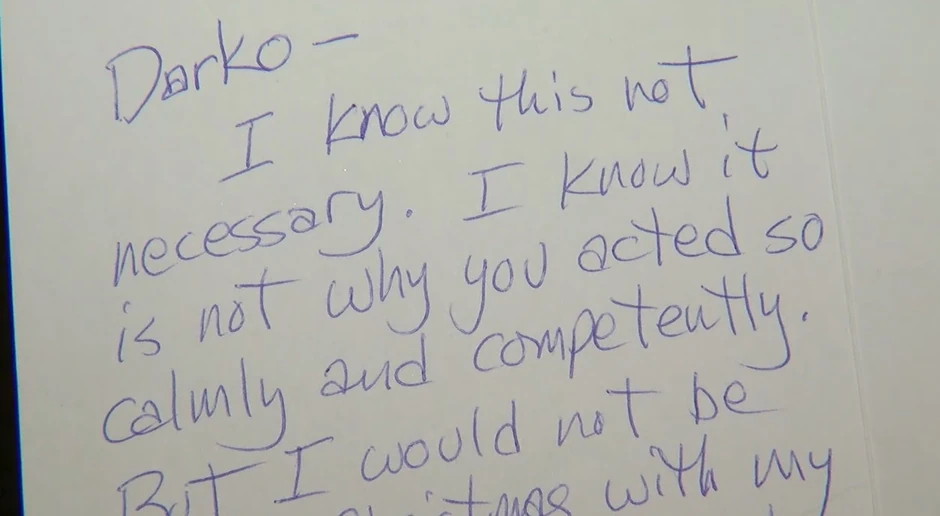 Darko –
I know this not
necessary. I know it
is not why you acted so
calmly and competently.
But I would not be
with my